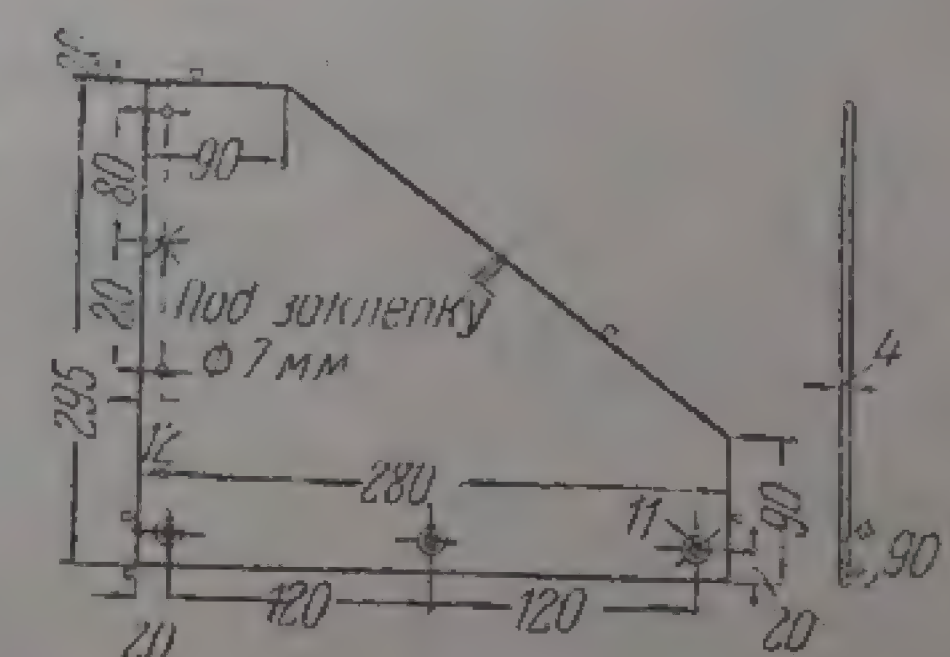 90
80
20
Под заклепку
Ф 7 мм
4
295
12
280
11
90
90
120
120
20
20